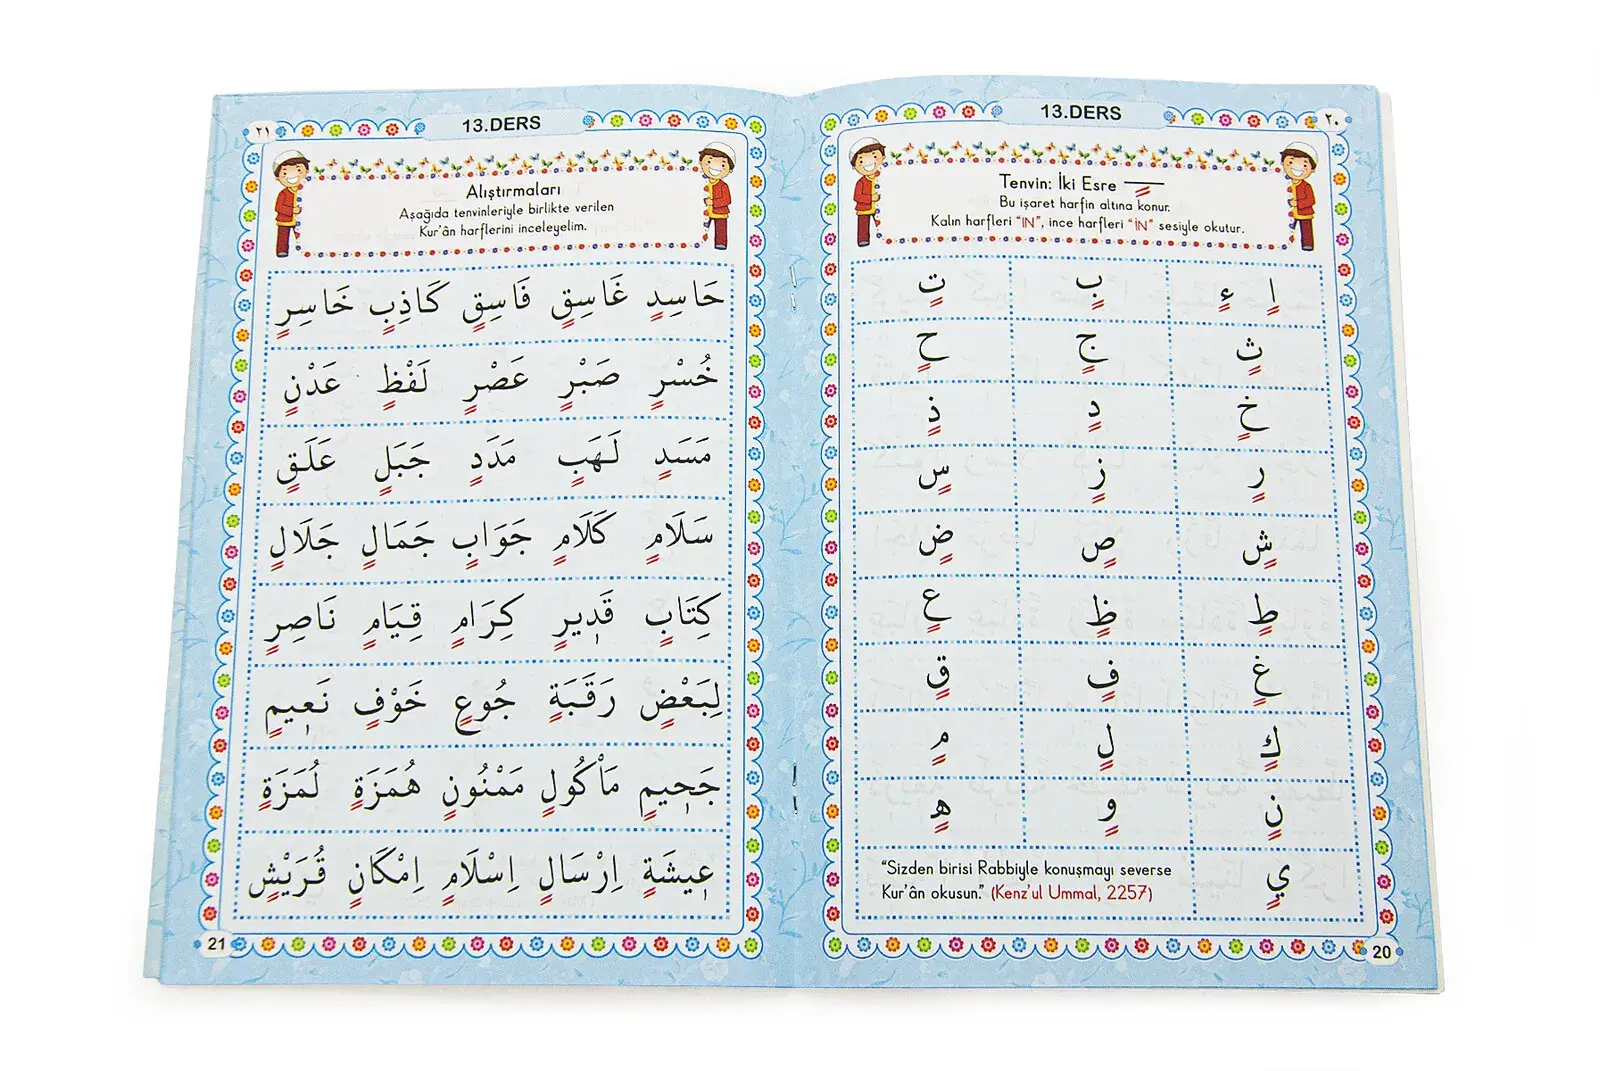 13.DERS
٢٠
Tenvin: İki Esre ـٍـ
Bu işaret harfin altına konur.
Kalın harfleri “IN”, ince harfleri “İN” sesiyle okutur.
اٍ ءٍ بٍ تٍ
ثٍ جٍ حٍ
خٍ دٍ ذٍ
رٍ زٍ سٍ
شٍ صٍ ضٍ
طٍ ظٍ عٍ
غٍ فٍ قٍ
كٍ لٍ مٍ
نٍ وٍ هٍ
يٍ
“Sizden birisi Rabbiyle konuşmayı severse
Kur’ân okusun.” (Kenz’ul Ummal, 2257)
20
٢١
13.DERS
Alıştırmaları
Aşağıda tenvinleriyle birlikte verilen
Kur’ân harflerini inceleyelim.
حَاسِدٍ غَاسِقٍ فَاسِقٍ كَاذِبٍ خَاسِرٍ
خُسْرٍ صَبْرٍ عَصْرٍ لَفْظٍ عَدْنٍ
مَسَدٍ لَهَبٍ مَدَدٍ جَبَلٍ عَلَقٍ
سَلَامٍ كَلَامٍ جَوَابٍ جَمَالٍ جَلَالٍ
كِتَابٍ قَدٖيرٍ كِرَامٍ قِيَامٍ نَاصِرٍ
لِبَعْضٍ رَقَبَةٍ جُوعٍ خَوْفٍ نَعٖيمٍ
جَحٖيمٍ مَاْكُولٍ مَمْنُونٍ هُمَزَةٍ لُمَزَةٍ
عٖيشَةٍ اِرْسَالٍ اِسْلَامٍ اِمْكَانٍ قُرَيْشٍ
21